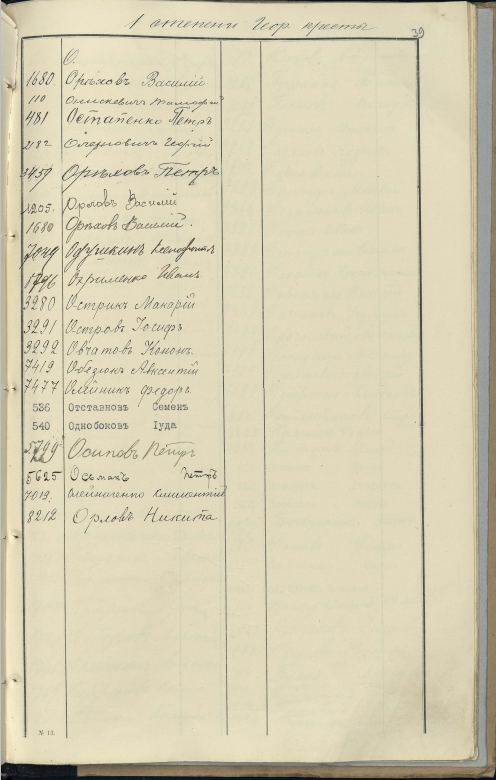 1 степени Геор. креста
39
О.
1680. Орѣховъ Василій
110 Онискевичъ Тимофей
481 Остапенко Петръ
2182 Георгій
3459 Орѣховъ Петръ
1205. Орловъ Василій
1680 Орѣховъ Василій.
7049 Офушкинъ Ксенофонтъ
1796 Охрименко Иванъ
3280 Острикъ Макарій
3291 Островъ Іосифъ
3292 Овчатовъ Кононъ
7419 Обезюкъ Авксентій
7477 Олейникъ Федоръ
536 Отставновъ Семенъ
540 Однобоковъ Іуда
5799 Осиповъ Петръ
5625 Осьмакъ Петръ
7019. Олейниченко Климентій
8212 Орловъ Никита
№ 13.